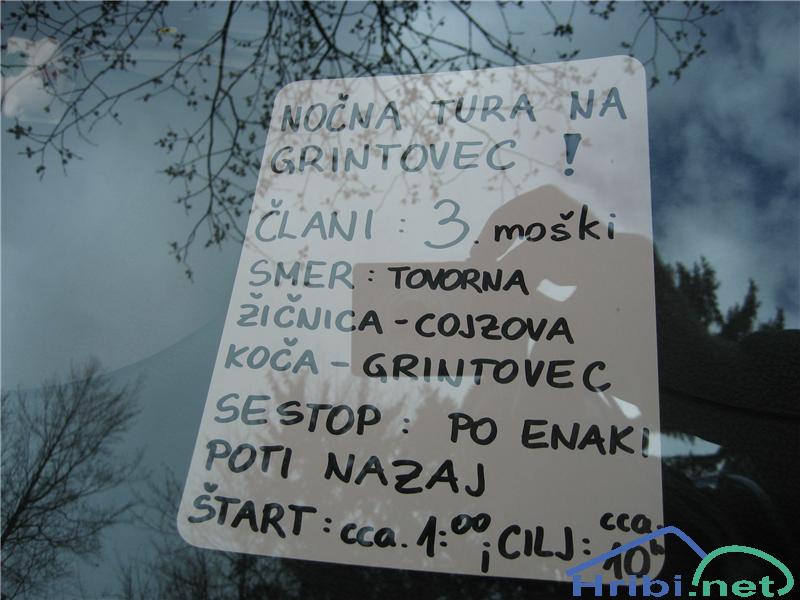 NOČNA TURA NA
GRINTOVEC !
ČLANI : 3. moški
SMER : TOVORNA
ŽIČNICA - COJZOVA
KOČA - GRINTOVEC
SESTOP : PO ENAKI
POTI NAZAJ
ŠTART : cca. 1:00 ; CILJ : cca. 10h
Hribi.net